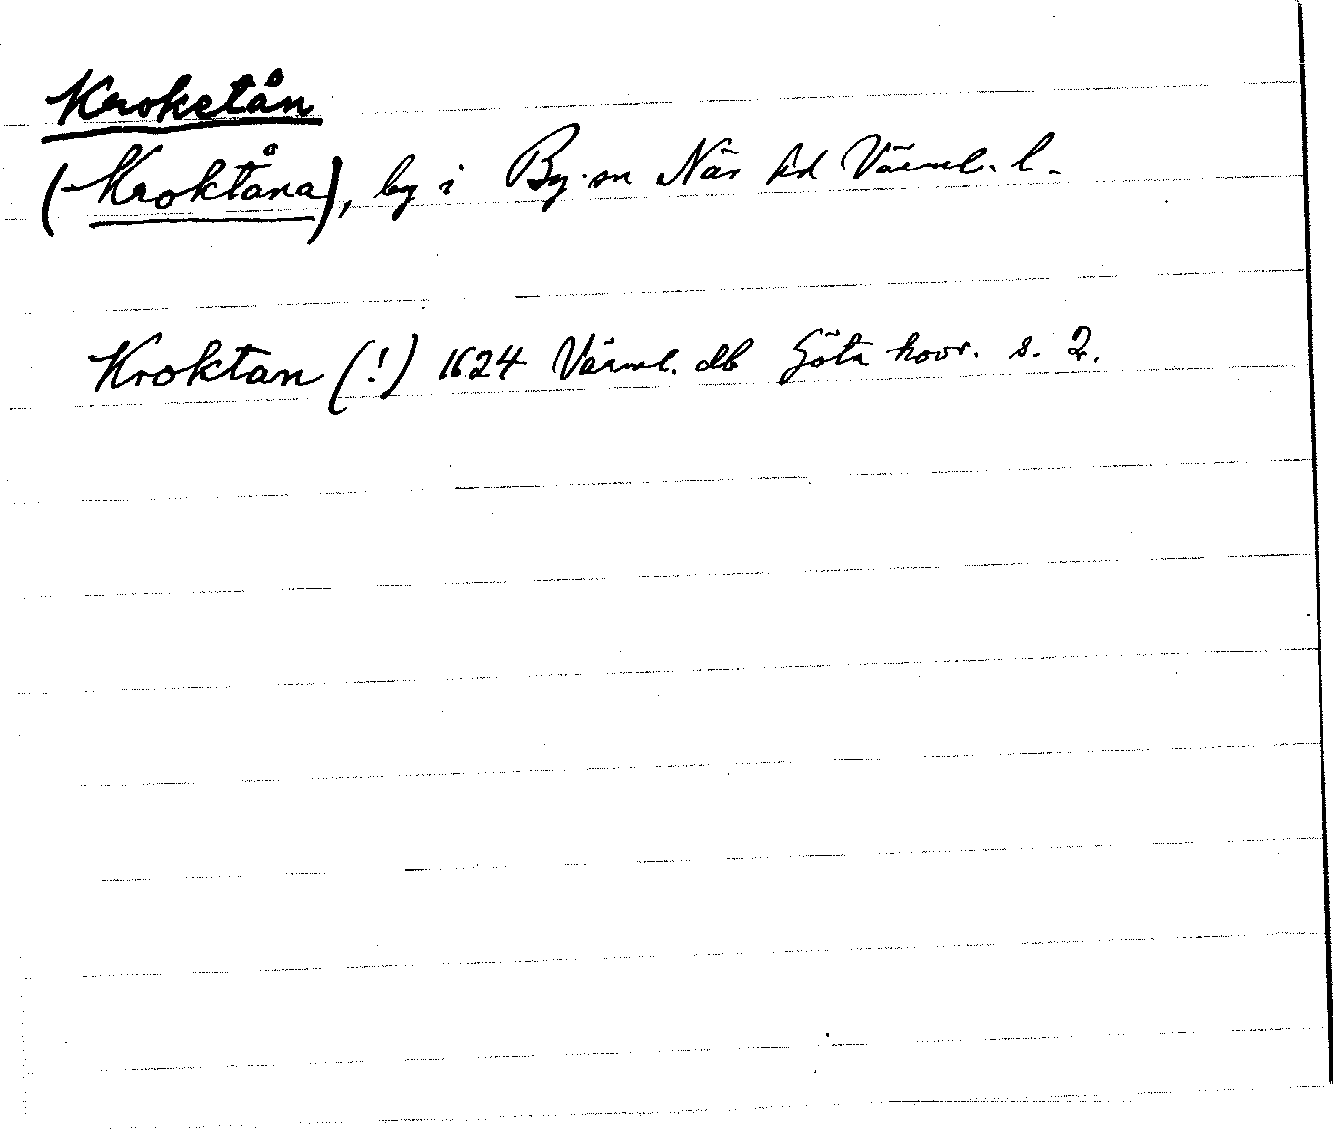 Kroketån
(Kroktåna), by i By sn Näs hd Värml. l.
Kroktan (!) 1624 Värml. db Göta hovr. s. 2.